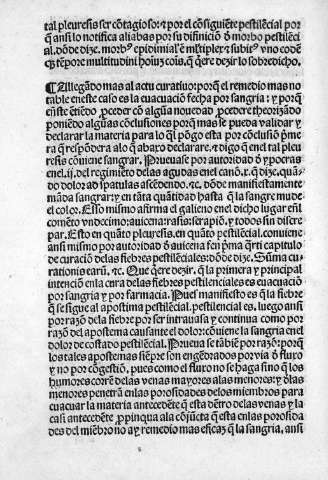 tal pleuresis ser cõtagioso: ⁊ por el cõsiguiẽte pestilẽcial por
q̃ ansi lo notifica aliabas por su difinició õ morbo pestilẽci
al. dõde dize. morbꝰ epidimialˀ ẽ mĺtiplex ⁊ subitꝰ vno eodẽ
q̃ tẽpore multitudini hoiuz cois. q̃ q̃ere dezir lo sobredicho.
¶ Allegãdo mas al actu curatiuo: porq̃ el remedio mas no
table en este caso es la euacuaciõ fecha por sangria: ⁊ y porq̃
en ẽste ẽtiẽdo ,pceder cõ algũa nouedad ,pcedere theorizãdo
poniẽdo algũas cõclusiones porq̃ mas se pueda validar y
declarar la materia para lo q̃l põgo esta por cõclusiõ p̃me
ra q̃ respõdera alo q̃ abaxo declarare. ⁊ digo q̃ enel tal pleu
resis cõuiene sangrar. Prueuase por autoridad õ ypocras
enel .ij. del regimiẽto delas agudas enel canõ. x. q̃ dize, quã
do dolor ad spatulas ascẽdendo. ⁊c. dõde manifiestamente
mãda sangrar: y en tãta quãtidad hasta q̃ la sangre mude
el color. Esso mismo afirma el galieno enel dicho lugar eñl
comẽto vndecimo: auicena: rasis: serapiõ. y todos sin discre
par. Esto en quãto pleuresis. en quãto pestilẽcial. conuiene
ansi mismo por autoridad õ auicena fen p̃ma q̃rti capitulo
de curaciõ delas fiebres pestilenciales: dõde dize. Sũma cu
rationis earũ. ⁊c. Que q̃ere dezir. q̃ la primera y principal
intenciõ enla cura delas fiebres pestilenciales es euacuaciõ
por sangria y por farmacia. Pues manifiesto es q̃ la fiebre
q̃ se sigue al apostima pestilẽcial. pestilencial es, luego ansi
por razõ dela fiebre por ser intrauasa y continua como por
razõ del apostema causante el dolor: cõuiene la sangria enel
dolor de costado pestilẽcial. Prueua se tãbiẽ por razõ: porq̃
los tales apostemas siẽpre son engẽdrados por via õ fluxo
y no por cõgestiõ, pues como el fluxo no se haga sino q̃ los
humores corrẽ delas venas mayores alas menores: y õlas
menores penetrã enlas porosidades delos miembros para
euacuar la materia antecedẽte q̃ esta dẽtro delas venas y la
casi antecedẽte ,ppinqua ala cõjũcta q̃ esta enlas porosida
des del miẽbro no ay remedio mas eficaz q̃ la sangria, ansi